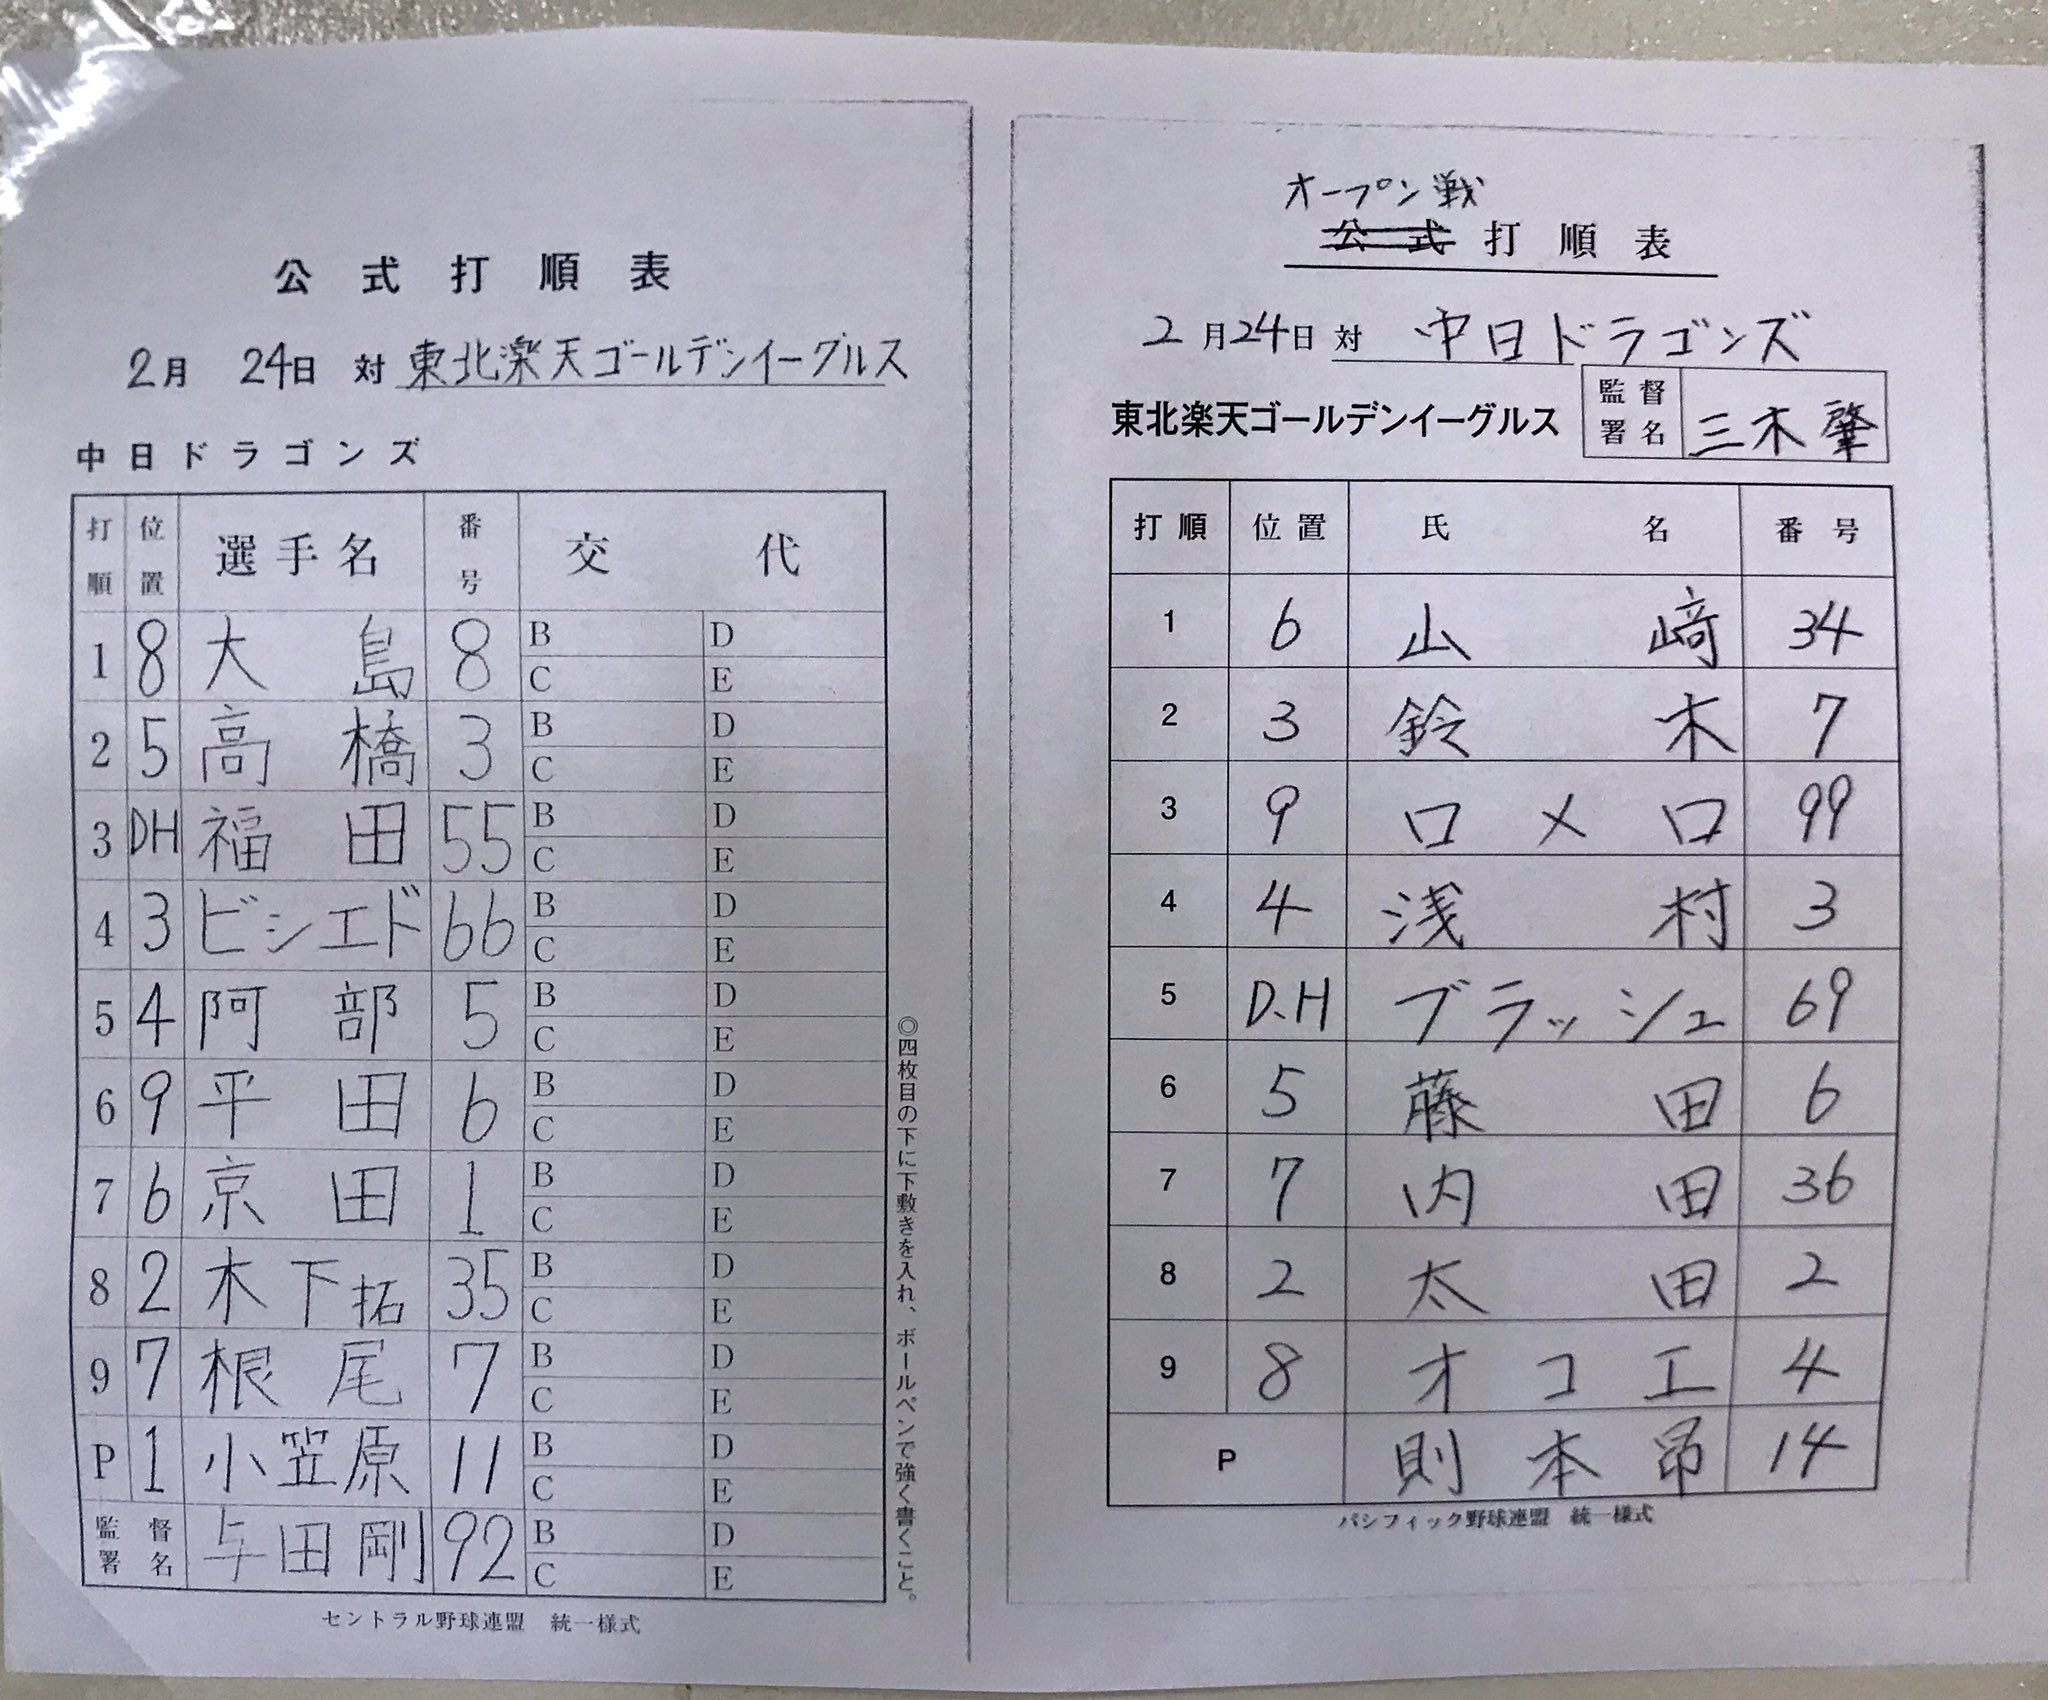 公式打順表
2月 24日 対 東北楽天ゴールデンイーグルス
中日ドラゴンズ
打順 位置 選手名 番号 交代
1 8 大島 8 B D
C E
2 5 高橋 3 B D
C E
3 DH 福田 55 B D
C E
4 3 ビシエド 66 B D
C E
5 4 阿部 5 B D
C E
6 9 平田 6 B D
C E
7 6 京田 1 B D
C E
8 2 木下拓 35 B D
C E
9 7 根尾 7 B D
C E
P 1 小笠原 11 B D
C E
監督署名 与田剛 92 B D
C E
セントラル野球連盟 統一様式
◎四枚目の下に下敷きを入れ、ボールペンで強く書くこと。
オープン戦
公式打順表
2月24日 対 中日ドラゴンズ
東北楽天ゴールデンイーグルス 監督署名 三木肇
打順 位置 氏名 番号
1 6 山﨑 34
2 3 鈴木 7
3 9 ロメロ 99
4 4 浅村 3
5 D.H ブラッシュ 69
6 5 藤田 6
7 7 内田 36
8 2 太田 2
9 8 オコエ 4
P 則本昂 14
パシフィック野球連盟 統一様式